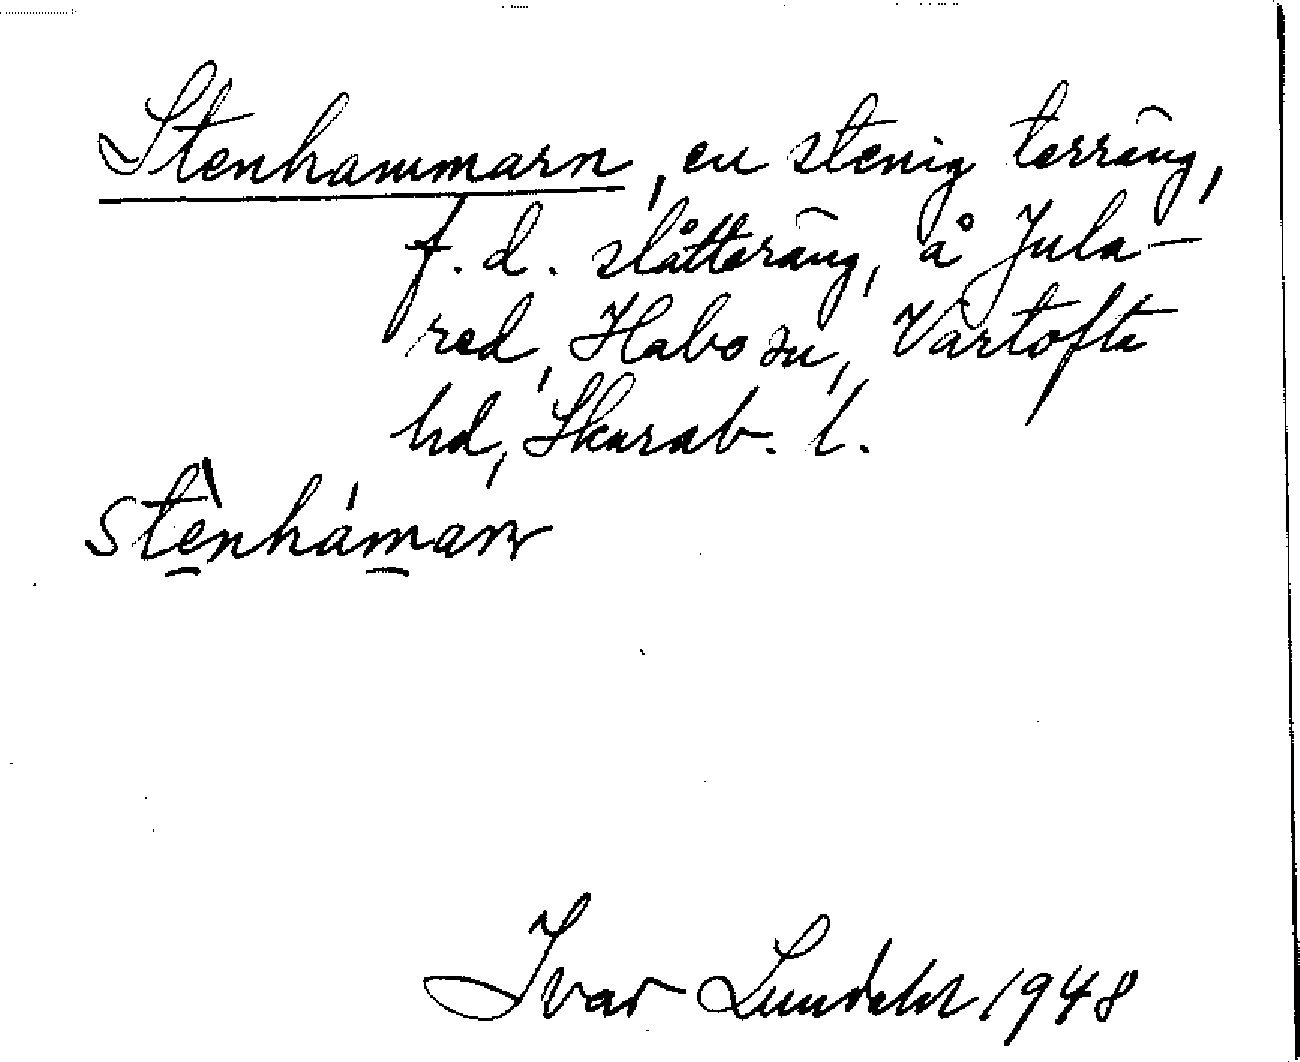 Stenhammarn, en stenig terräng,
f.d. slåtteräng, å Jula-
red, Habo sn, Vartofta
hd, Skarab. l.
stè̱nháma̱rn
Ivar Lundahl 1948